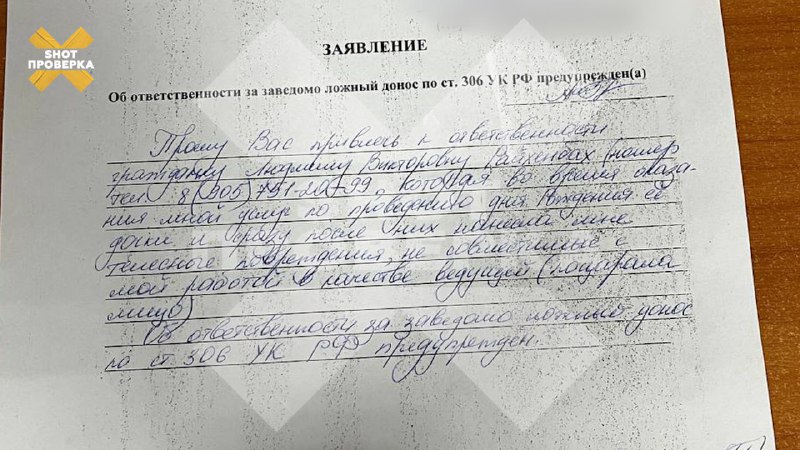 SHOT
ПРОВЕРКА
ЗАЯВЛЕНИЕ
Об ответственности за заведомо ложный донос по ст. 306 УК РФ предупрежден(а)
Прошу Вас привлечь к ответственности
гражданку Людмилу Викторовну (номер
тел 8(905)791-20-99, которая во время оказа-
ния мной услуг по проведению дня рождения её
дочки и сразу после них нанесла мне
телесного повреждения, не совместимые с
моей работой в качестве ведущей (поцарапала
лицо)
Об ответственности за заведомо ложный донос
по ст. 306 УК РФ предупрежден.